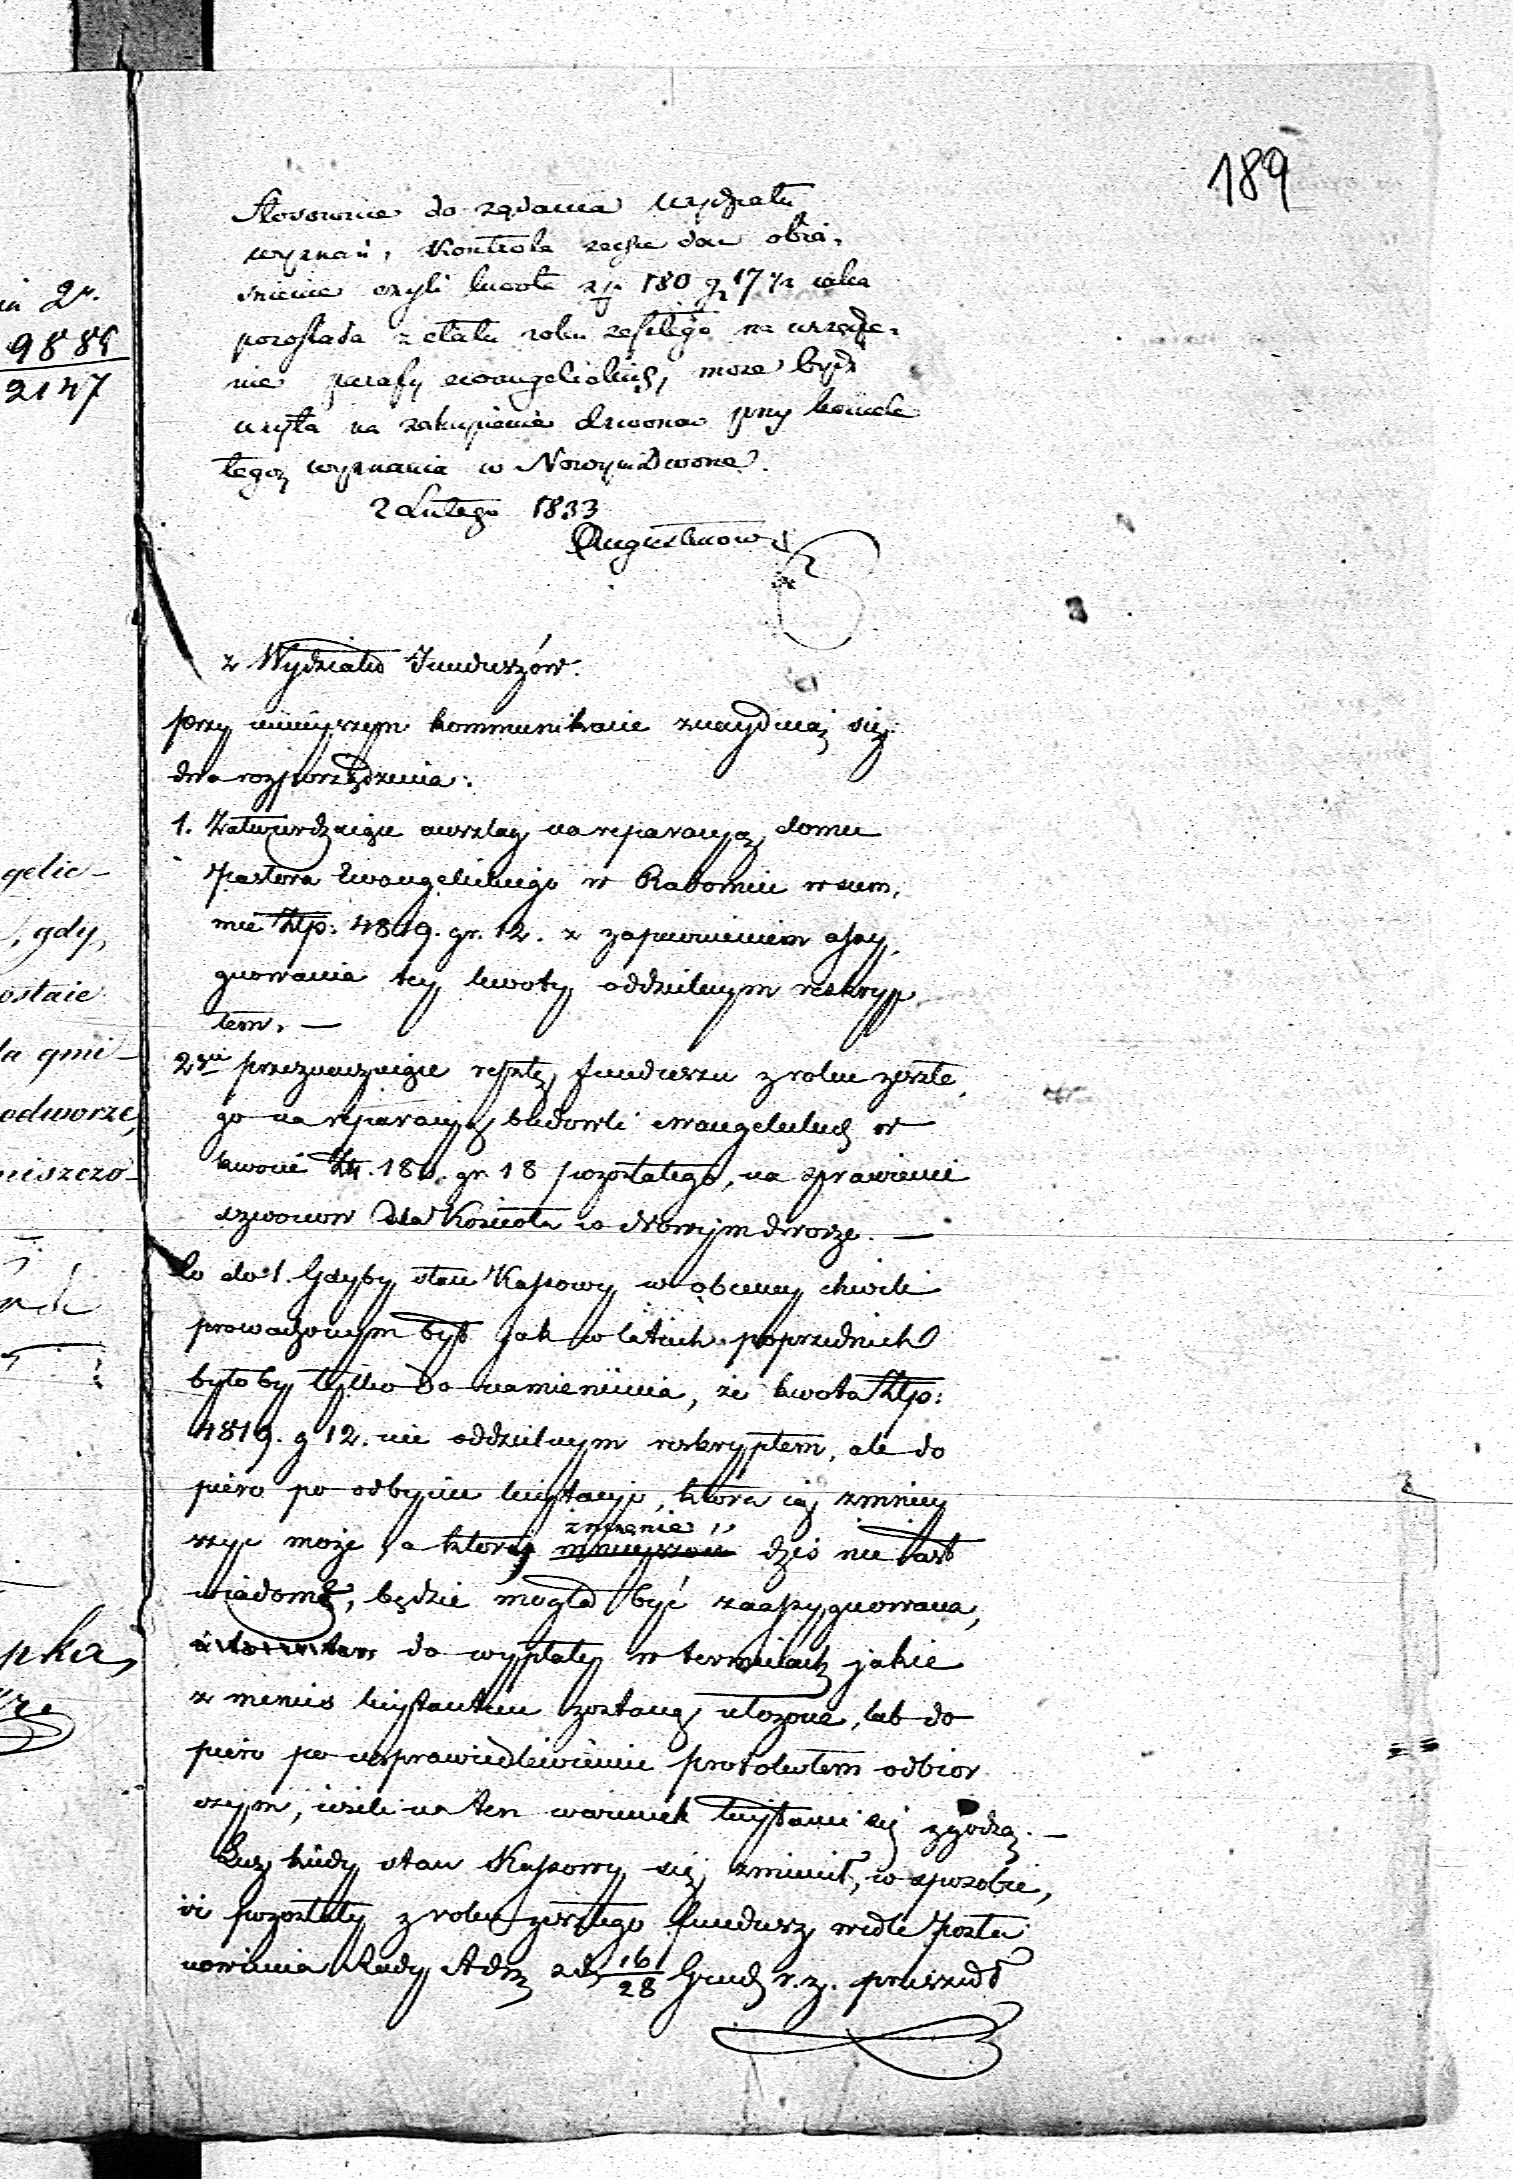 189
Stosownie do żądania Wydziału
wyznań, Kontrola zechce dać obia-
śnienie czyli kwota zp 180 gr 17 1/2 iaka
pozostała z etatu roku zeszłego na urządze-
nie parafy ewangelickich, może bydź
użyta na zakupienie dzwona przy kościele
tegoż wyznania w Nowym Dworze.
2 Lutego 1833
z Wydziału Funduszów.
przy ninieyszem kommunikacie znayduią się
dwa rozporządzenia:
1. Zatwierdzaiące anszlag na reparacyą domu
Pastora Ewangelickiego w Radomiu w sum,
mie Złp: 4819. gr. 12. z zapewnieniem assy,
gnowania tey kwoty oddzielnym reskryp
tem. —
2gie przeznaczaiące resztę funduszu z roku zeszłe,
go na reparacyą budowli ewangelickich w
kwocie Zł. 180. gr. 18 pozostałego, na sprawienie
dzwonów dla Kościoła w Nowymdworze. —
Co do 1. Gdyby stan Kassowy w obecney chwili
prowadzonym był jak w latach poprzednich
byłoby tylko do namienienia, że kwota Złp:
4819. g 12. nie oddzielnym reskryptem, ale do
piero po odbyciu licytacyi, która ią zmniey
szyć może, a któréy zniżenie dziś nie iest
wiadomé, będzie mogła być zaassygnowana,
do wypłaty w terminach jakie
z mienić licytantem zostaną ułożone, lub do
piero po usprawiedliwieniu protokułem odbior
czym, ieżeli na ten warunek licytanci się zgodzą. —
Lecz kiedy stan Kassowy się zmienił, w sposobie,
iż pozostały z roku zeszłego fundusz wedle Posta
nowienia Rady Adm z d 16/28 Grud r. z. przeszedł
in 2r.
9885
2147
gelic-
, gdy,
ostaie
la gmi-
odworze,
niszczo-
pka,